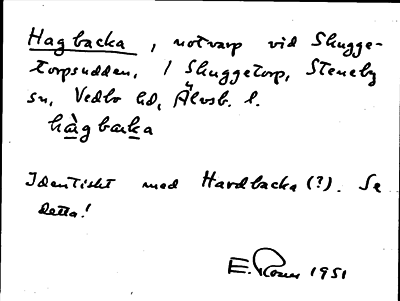 Hagbacka, notvarp vid Skugge-
torpsudden, / Skuggetorp, Steneby
sn, Vedbo hd, Älvsb. l.
hàgbacka
Identiskt med Hardbacka (?). Se
detta!
E. 1951